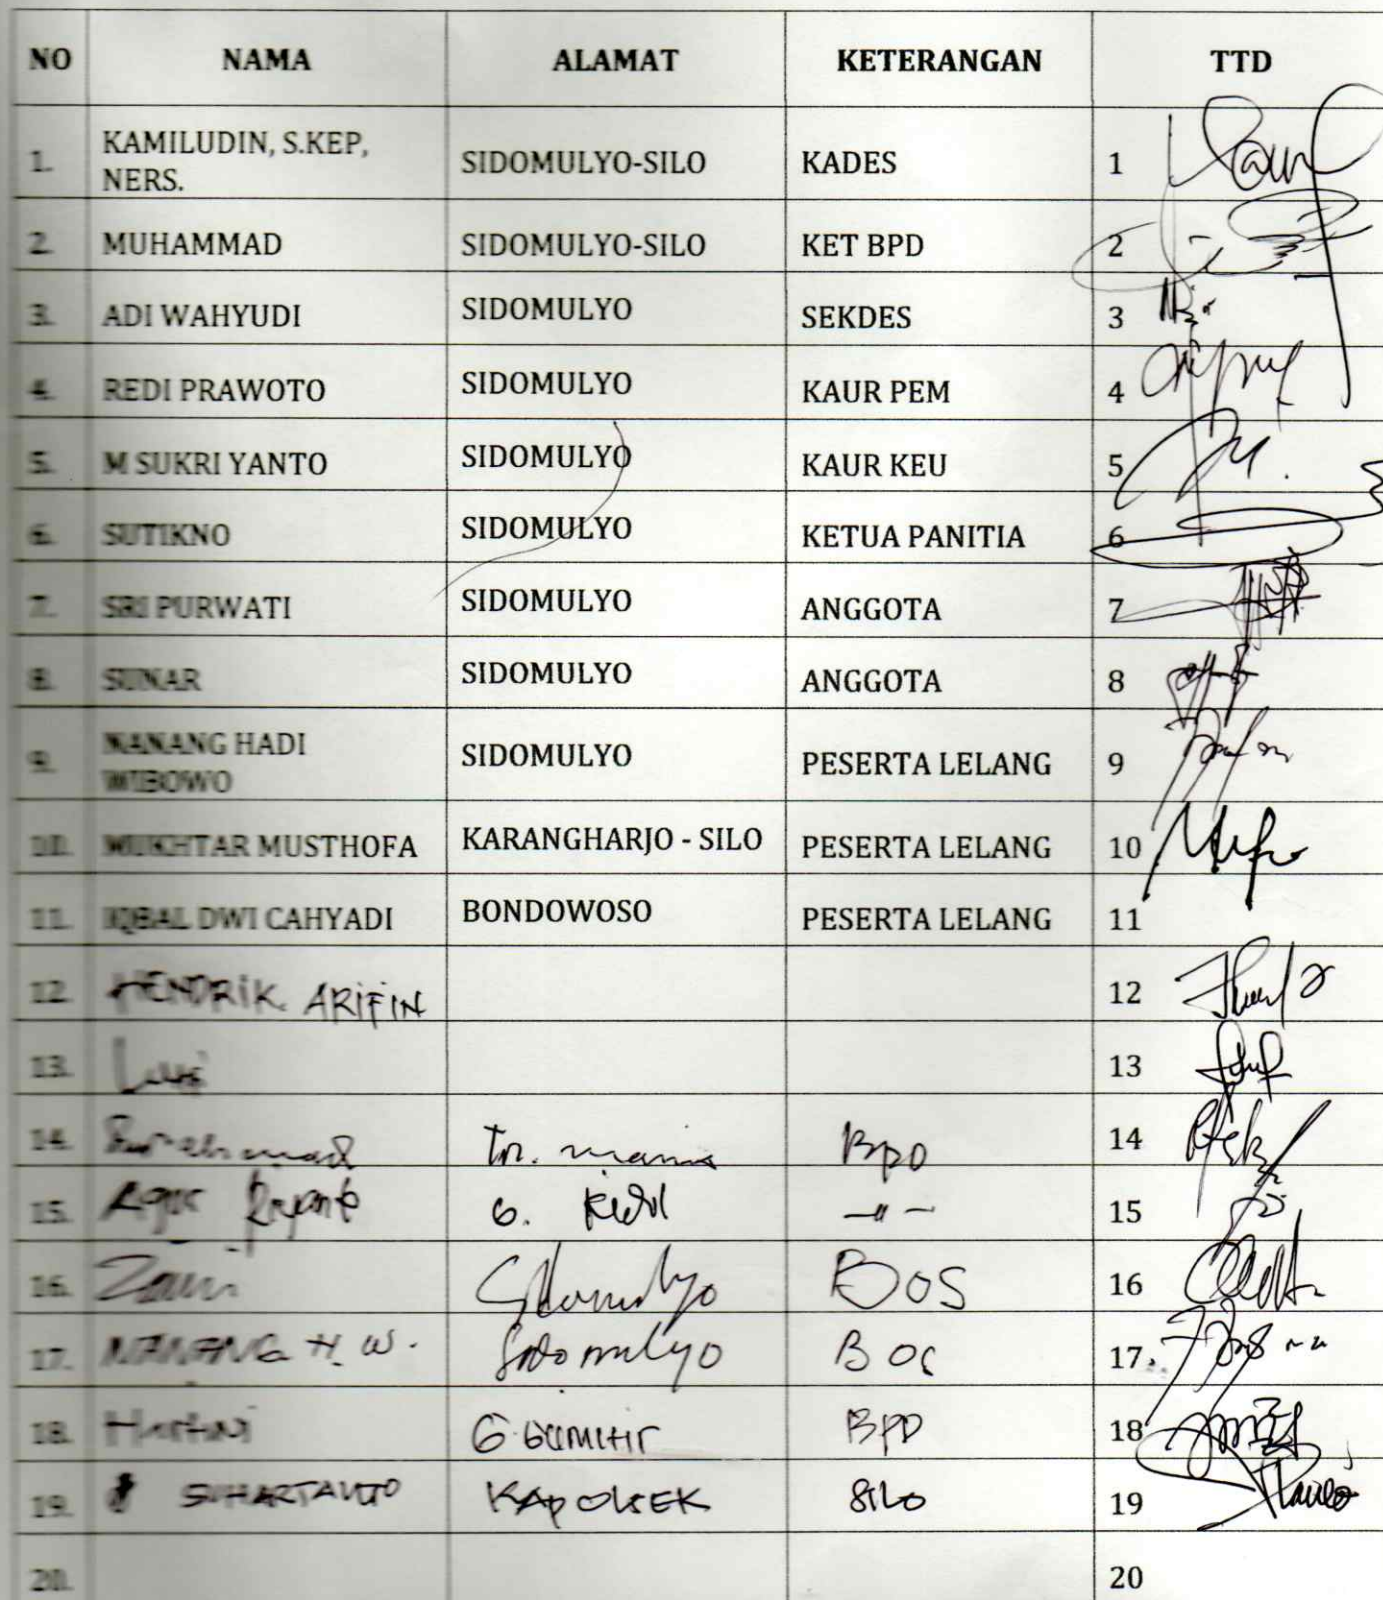 NO NAMA ALAMAT KETERANGAN TTD
1. KAMILUDIN, S.KEP, NERS. SIDOMULYO-SILO KADES 1
2. MUHAMMAD SIDOMULYO-SILO KET BPD 2
3. ADI WAHYUDI SIDOMULYO SEKDES 3
4. REDI PRAWOTO SIDOMULYO KAUR PEM 4
5. M SUKRI YANTO SIDOMULYO KAUR KEU 5
6. SUTIKNO SIDOMULYO KETUA PANITIA 6
7. SRI PURWATI SIDOMULYO ANGGOTA 7
8. SUNAR SIDOMULYO ANGGOTA 8
9. NANANG HADI WIBOWO SIDOMULYO PESERTA LELANG 9
10. MUKHTAR MUSTHOFA KARANGHARJO - SILO PESERTA LELANG 10
11. IQBAL DWI CAHYADI BONDOWOSO PESERTA LELANG 11
12. HENDRIK ARIFIN 12
13. 13
14. BPD 14
15. 15
16. Sidomulyo 16
17. NANANG H. W. Sidomulyo 17
18. Hartini G. GUMITIR BPD 18
19. SUHARTANTO KAPOLSEK SILO 19
20. 20